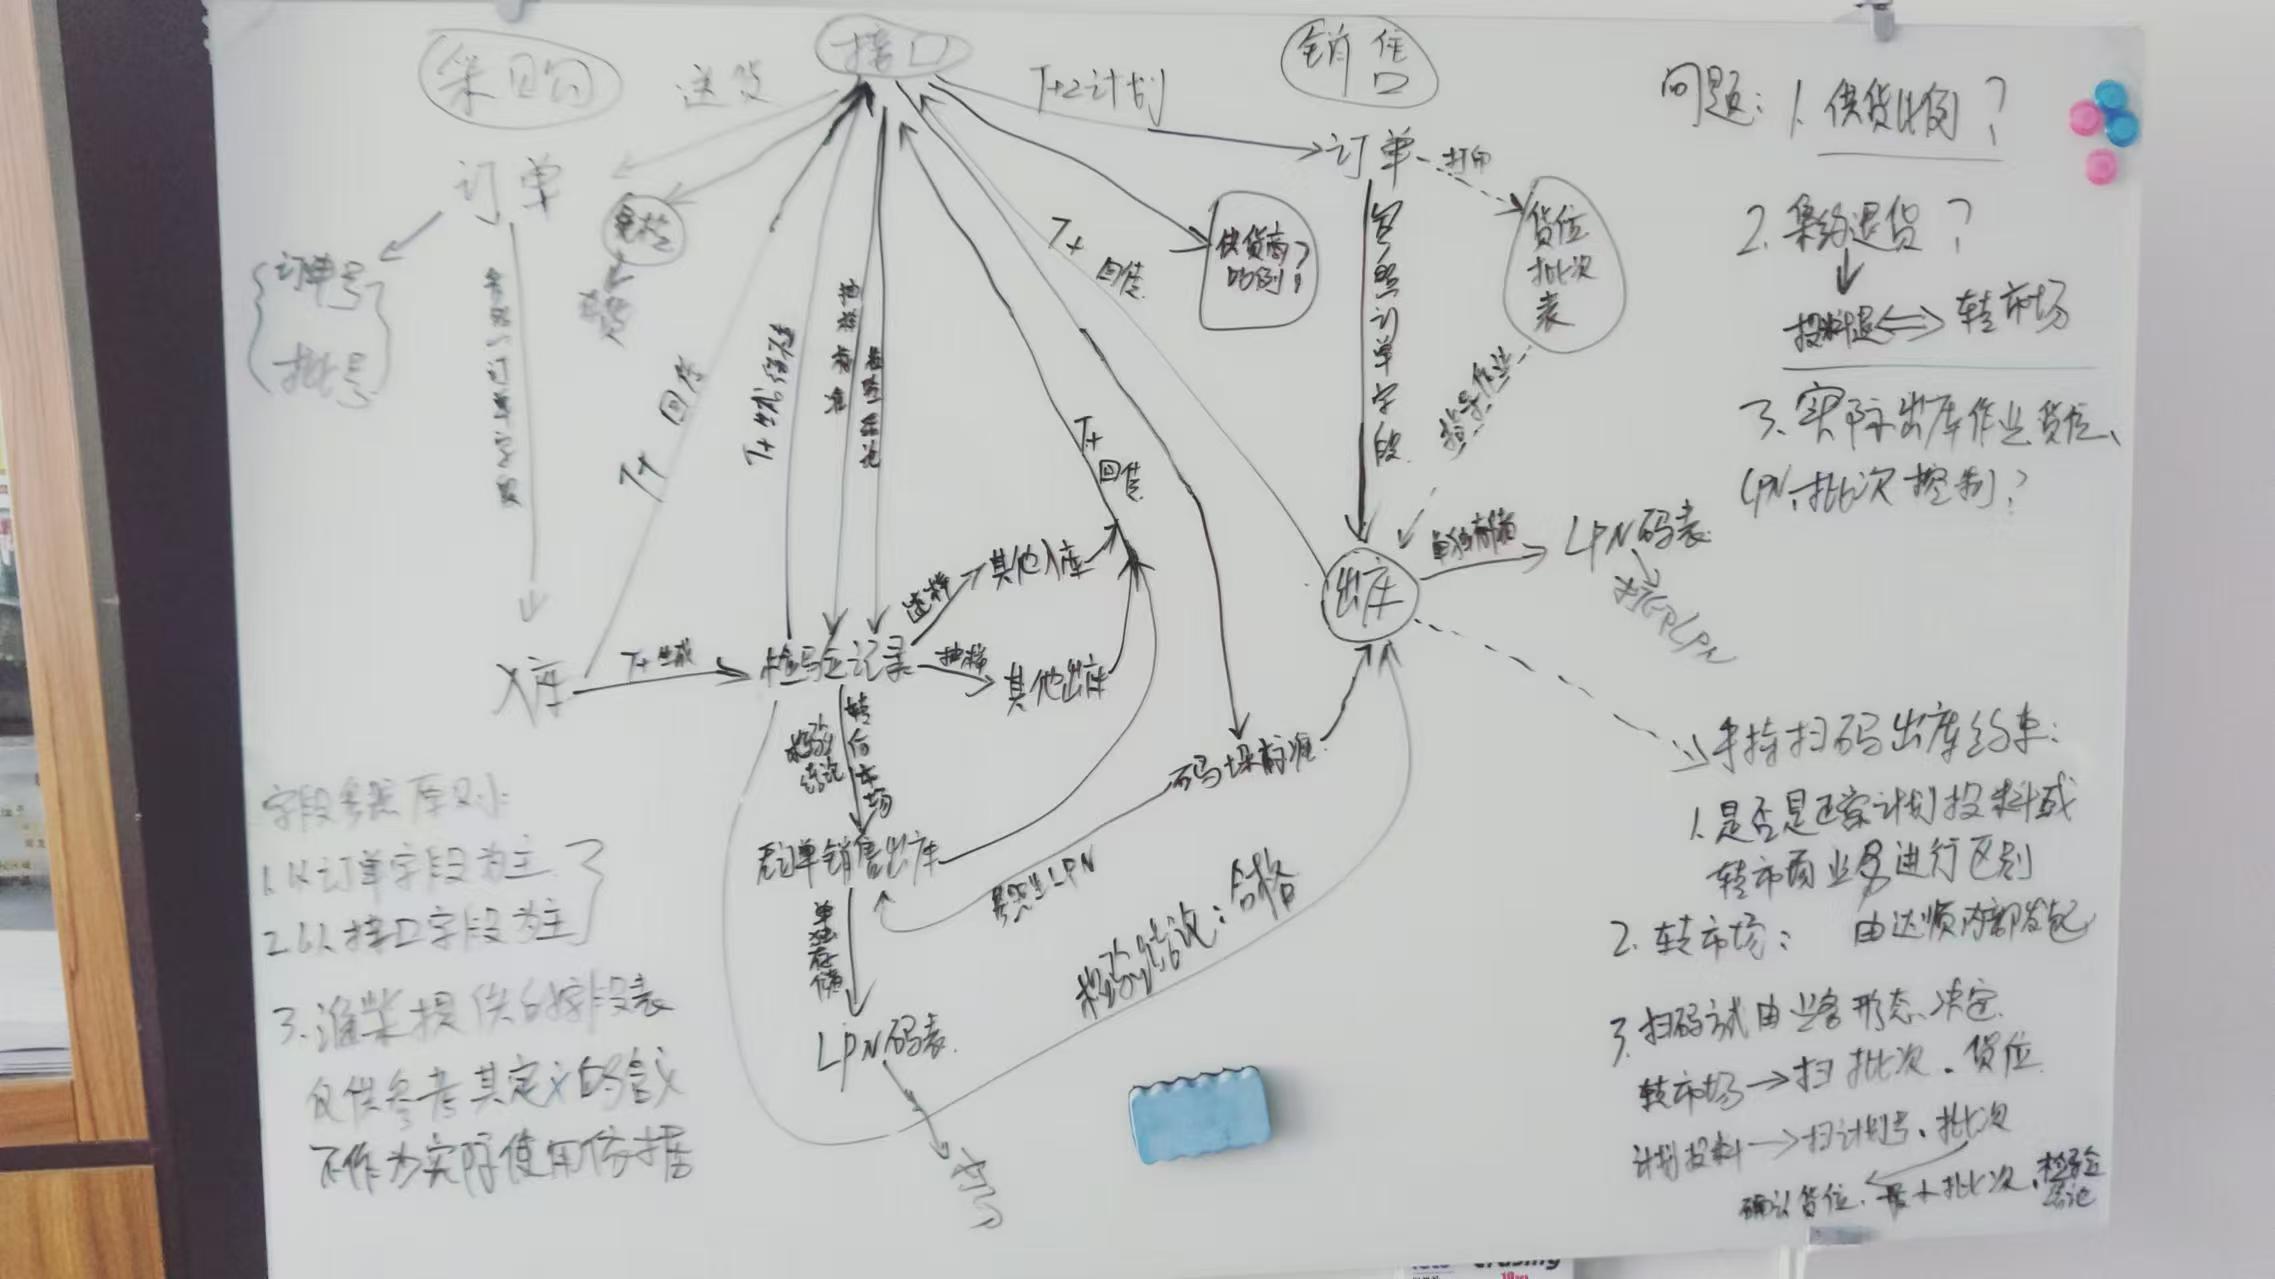 采购
送货
接口
T+2计划
销售
订单
订单号
批号
参照订单字段
免检
T+ 回传
T+生成后传
抽样标准
检验结论
T+ 回传
T+ 回传
供货商比例?
订单
打印
货位批次表
参照订单字段
指导作业
入库
T+生成
检验记录
送样
其他入库
抽样
其他出库
检验结论
转向市场
销售出库
单独存储
LPN码表
参照生LPN
码垛标准
检验结论:合格
出库
单独存储
LPN码表
字段参照原则:
1.以订单字段为主
2.以接口字段为主
3.潍柴提供的字段表
仅供参考其定义的含义
不作为实际使用依据
问题:1.供货比例?
2.集约退货?
投料退
转市场
3.实际出库作业货位、
LPN、批次控制?
手持扫码出库约束:
1.是否是正常计划投料或
转市场业务进行区别
2.转市场: 由达顺内部发起
3.扫码方式由业务形态决定.
转市场→扫批次、货位
计划投料→扫计划号、批次
确认货位、最小批次、检验结论